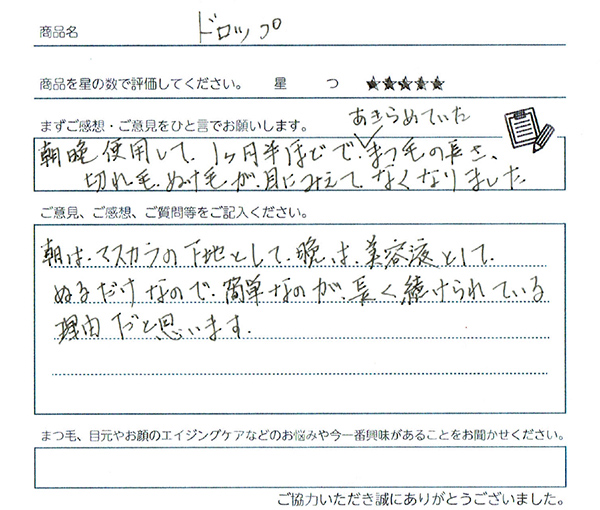 商品名 ドロップ
商品を星の数で評価してください。 星 つ ★★★★★
まずご感想・ご意見をひと言でお願いします。
あきらめていた
朝晩使用して、1ヶ月半ほどで、まつ毛の長さ、
切れ毛、ぬけ毛が、目にみえて、なくなりました
ご意見、ご感想、ご質問等をご記入ください。
朝は、マスカラの下地として、晩は、美容液として、
ぬるだけなので、簡単なのが、長く続けられている
理由だと思います。
まつ毛、目元やお顔のエイジングケアなどのお悩みや今一番興味があることをお聞かせください。
ご協力いただき誠にありがとうございました。